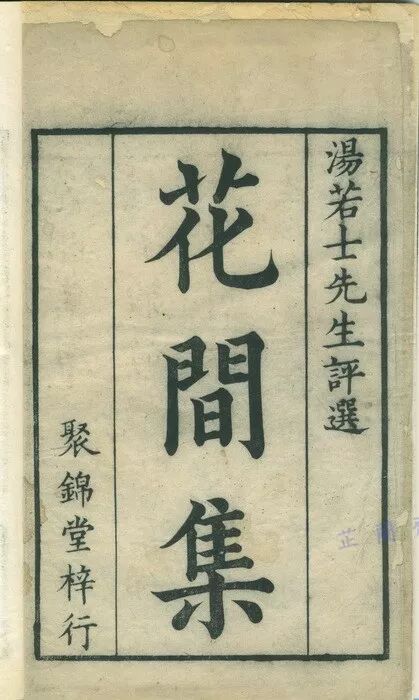 湯若士先生評選
花間集
聚錦堂梓行